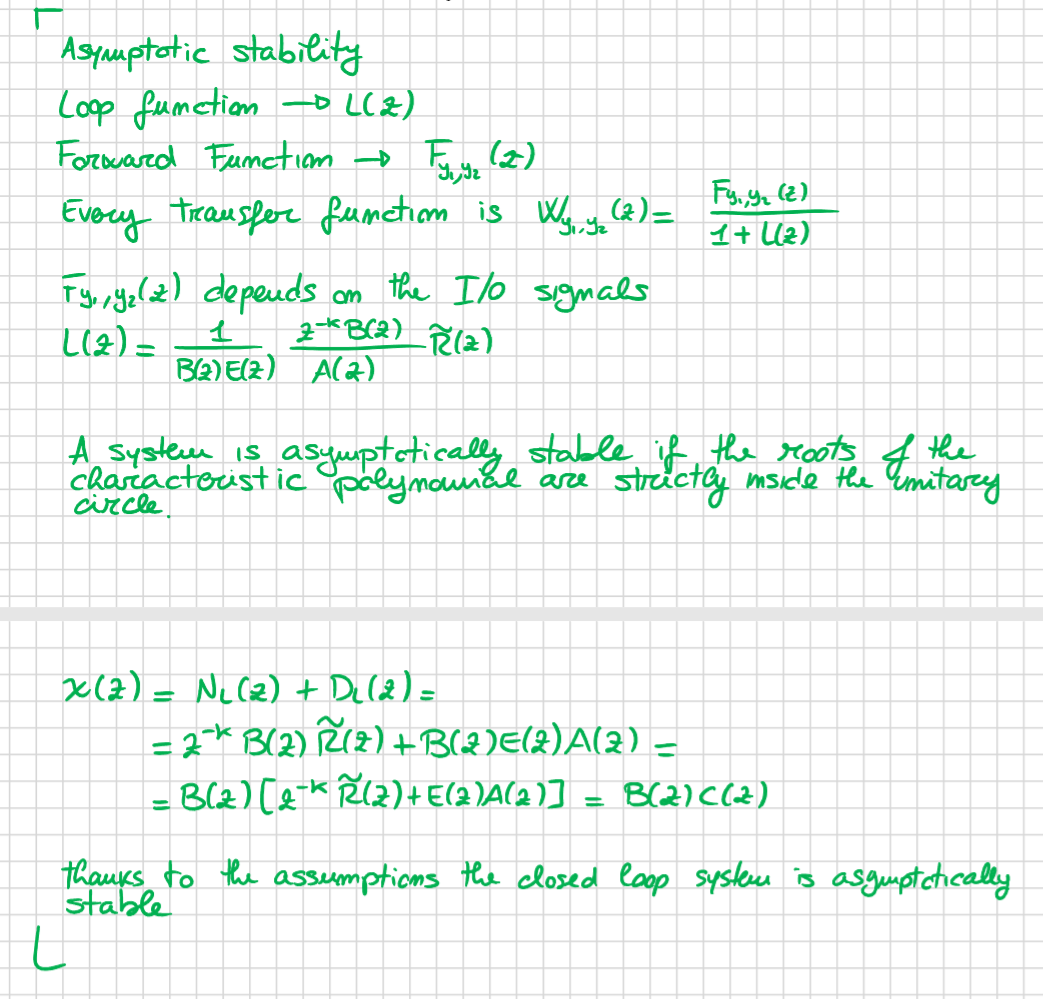 Asymptotic stability
Loop function → L(z)
Forward Function → F_{y₁,y₂}(z)
Every transfer function is W_{y₁,y₂}(z) = F_{y₁,y₂}(z) / (1 + L(z))
F_{y₁,y₂}(z) depends on the I/O signals
L(z) = 1 / (B(z)E(z)) z^{-k}B(z) / A(z) R̃(z)
A system is asymptotically stable if the roots of the
characteristic polynomial are strictly inside the unitary
circle.
χ(z) = N_L(z) + D_L(z) =
= z^{-k} B(z) R̃(z) + B(z)E(z)A(z) =
= B(z) [z^{-k} R̃(z) + E(z)A(z)] = B(z)C(z)
thanks to the assumptions the closed loop system is asymptotically
stable